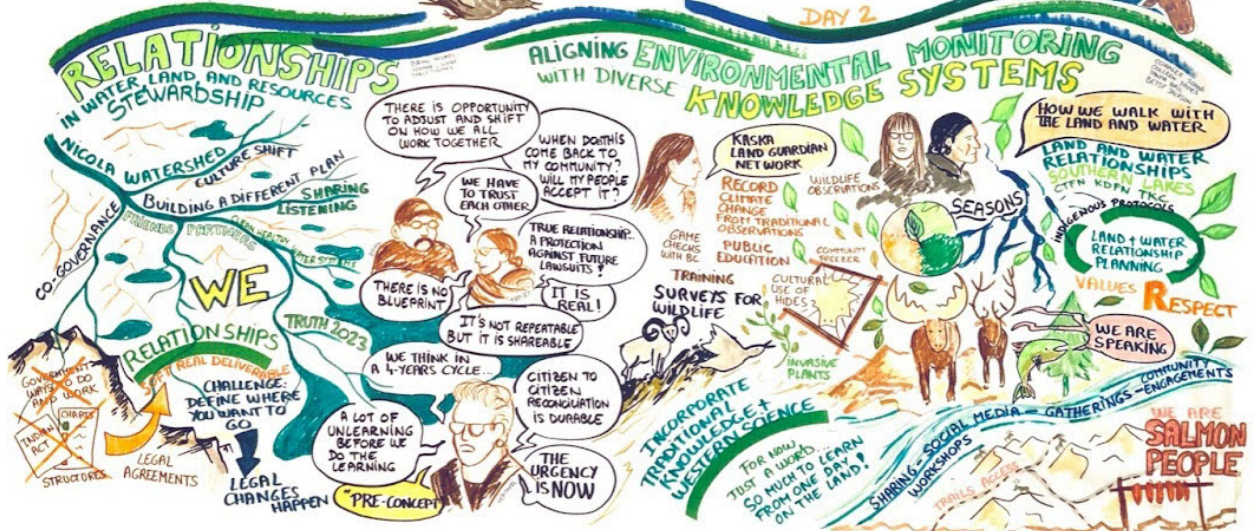 DAY 2
RELATIONSHIPS
IN WATER, LAND, AND RESOURCES
STEWARDSHIP
NICOLA WATERSHED
CULTURE SHIFT
BUILDING A DIFFERENT PLAN
SHARING
LISTENING
CO-GOVERNANCE
FRIENDS
PARTNERS
CLEAN HEALTHY
WATER SYSTEMS
WE
RELATIONSHIPS
TRUTH 2023
SOFT REAL DELIVERABLE
GOVERNMENT
WAYS TO DO
AND WORK
CHARTS
INDIAN
ACT
STRUCTURES
LEGAL
AGREEMENTS
CHALLENGE:
DEFINE WHERE
YOU WANT TO
GO
LEGAL
CHANGES
HAPPEN
THERE IS OPPORTUNITY
TO ADJUST AND SHIFT
ON HOW WE ALL
WORK TOGETHER
WHEN DO THIS
COME BACK TO
MY COMMUNITY?
WILL MY PEOPLE
ACCEPT IT?
WE HAVE
TO TRUST
EACH OTHER
TRUE RELATIONSHIP...
A PROTECTION
AGAINST FUTURE
LAWSUITS!
THERE IS NO
BLUEPRINT
IT IS
REAL!
IT'S NOT REPEATABLE
BUT IT IS SHAREABLE
WE THINK IN
A 4-YEARS CYCLE...
CITIZEN TO
CITIZEN
RECONCILIATION
IS DURABLE
A LOT OF
UNLEARNING
BEFORE WE
DO THE
LEARNING
"PRE-CONCEP
THE
URGENCY
IS NOW
ALIGNING ENVIRONMENTAL MONITORING
WITH DIVERSE KNOWLEDGE SYSTEMS
KASKA
LAND GUARDIAN
NETWORK
RECORD
CLIMATE
CHANGE
FROM TRADITIONAL
OBSERVATIONS
WILDLIFE
OBSERVATIONS
GAME
CHECKS
WITH BC
PUBLIC
EDUCATION
COMMUNITY
FREEZER
TRAINING
SURVEYS FOR
WILDLIFE
CULTURAL
USE OF
HIDES
INVASIVE
PLANTS
INCORPORATE
TRADITIONAL
KNOWLEDGE +
WESTERN SCIENCE
FOR NOW
JUST A WORD...
SO MUCH TO LEARN
FROM ONE DAY
ON THE LAND!
HOW WE WALK WITH
THE LAND AND WATER
LAND AND WATER
RELATIONSHIPS
SOUTHERN LAKES
CTFN KDFN TKC
SEASONS
INDIGENOUS PROTOCOLS
LAND + WATER
RELATIONSHIP
PLANNING
VALUES RESPECT
WE ARE
SPEAKING
SHARING - SOCIAL MEDIA - GATHERINGS - COMMUNITY
ENGAGEMENTS
WORKSHOPS
TRAILS ACCESS
WE ARE
SALMON
PEOPLE